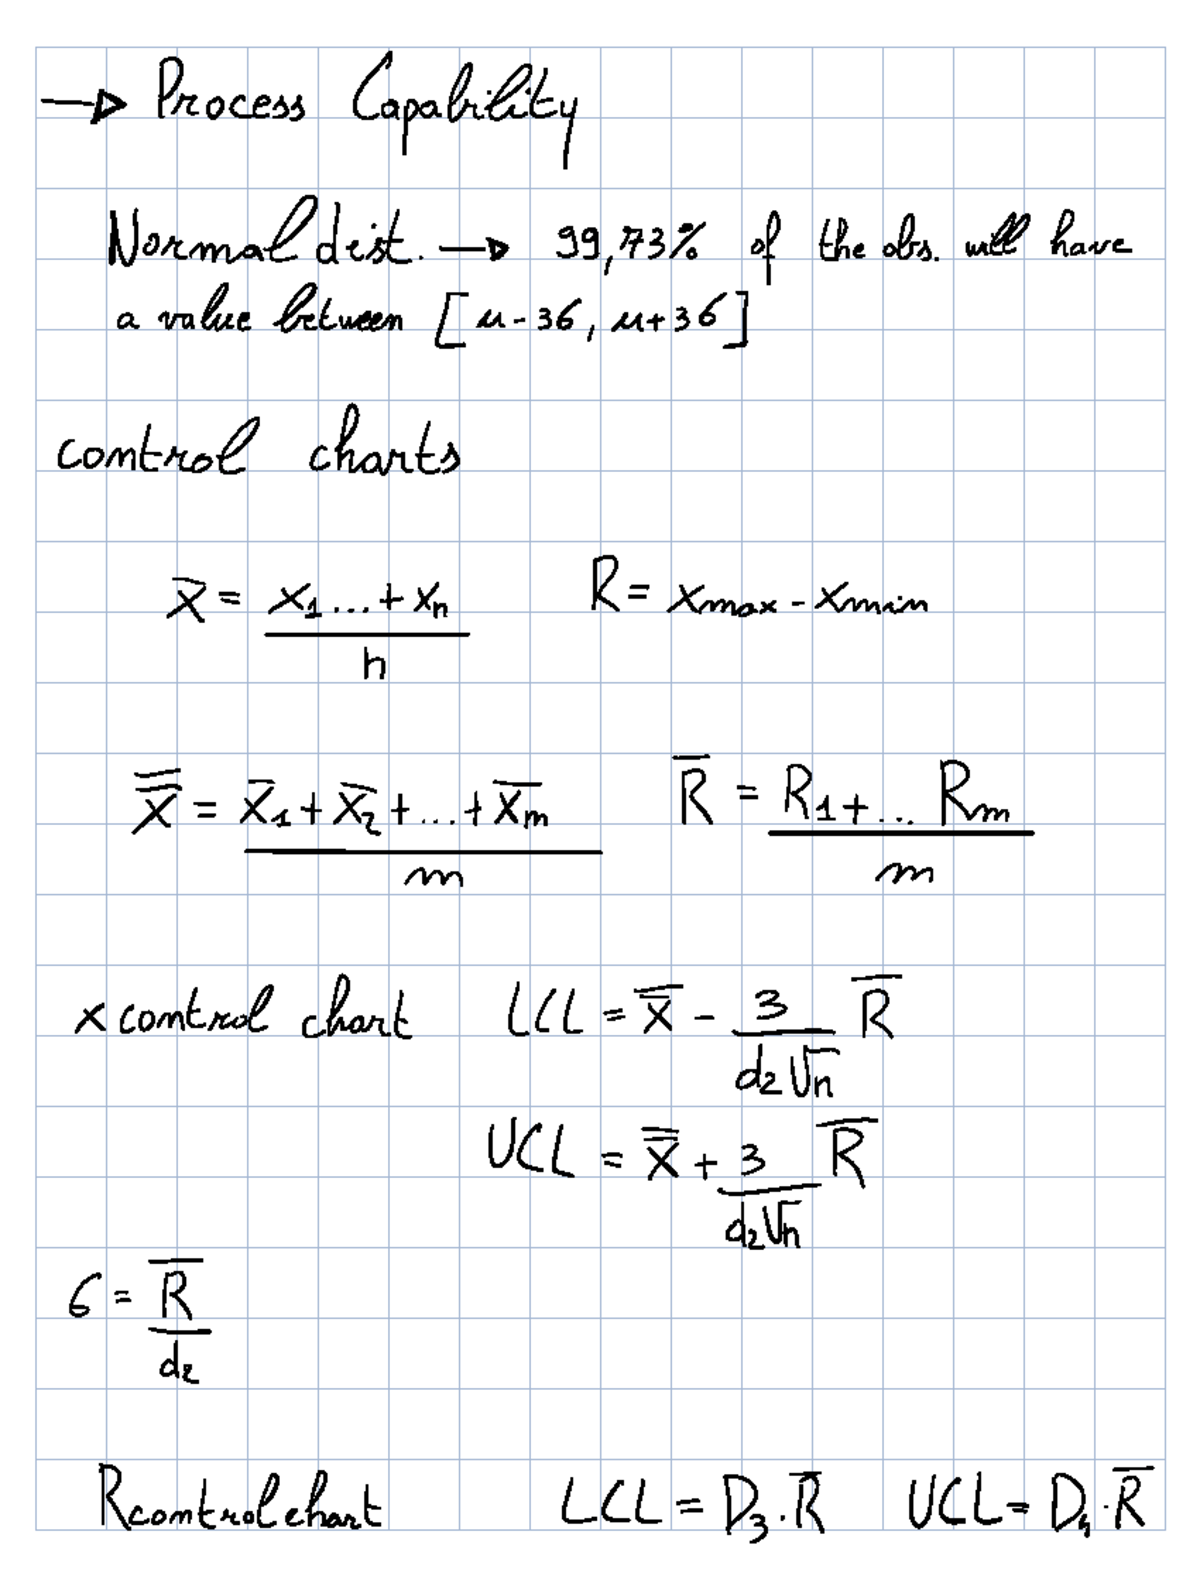 → Process Capability
Normal dist. → 99,73% of the obs. will have
a value between [μ-3σ, μ+3σ]
control charts
x̄ = (x₁...+xₙ)/n R = xmax - xmin
x̿ = (x̄₁+x̄₂+...+x̄m)/m R̄ = (R₁+... Rm)/m
x control chart LCL = x̿ - 3/(d₂√n) R̄
UCL = x̿ + 3/(d₂√n) R̄
σ = R̄/d₂
R control chart LCL = D₃·R̄ UCL = D₄·R̄